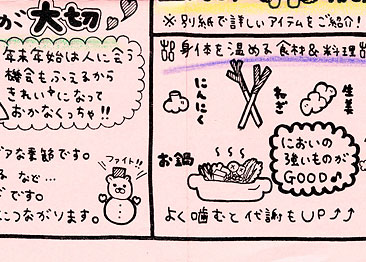 が大切
年末年始は人に会う
機会もふえるから
きれいになって
おかなくっちゃ!!
アな季節です。
る など…
です。
につながります。
ファイト!!
※別紙で詳しいアイテムもご紹介!
身体を温める食材&料理
にんにく
ねぎ
生姜
お鍋
においの
強いものが
GOOD♪
よく噛むと代謝もUP⤴⤴